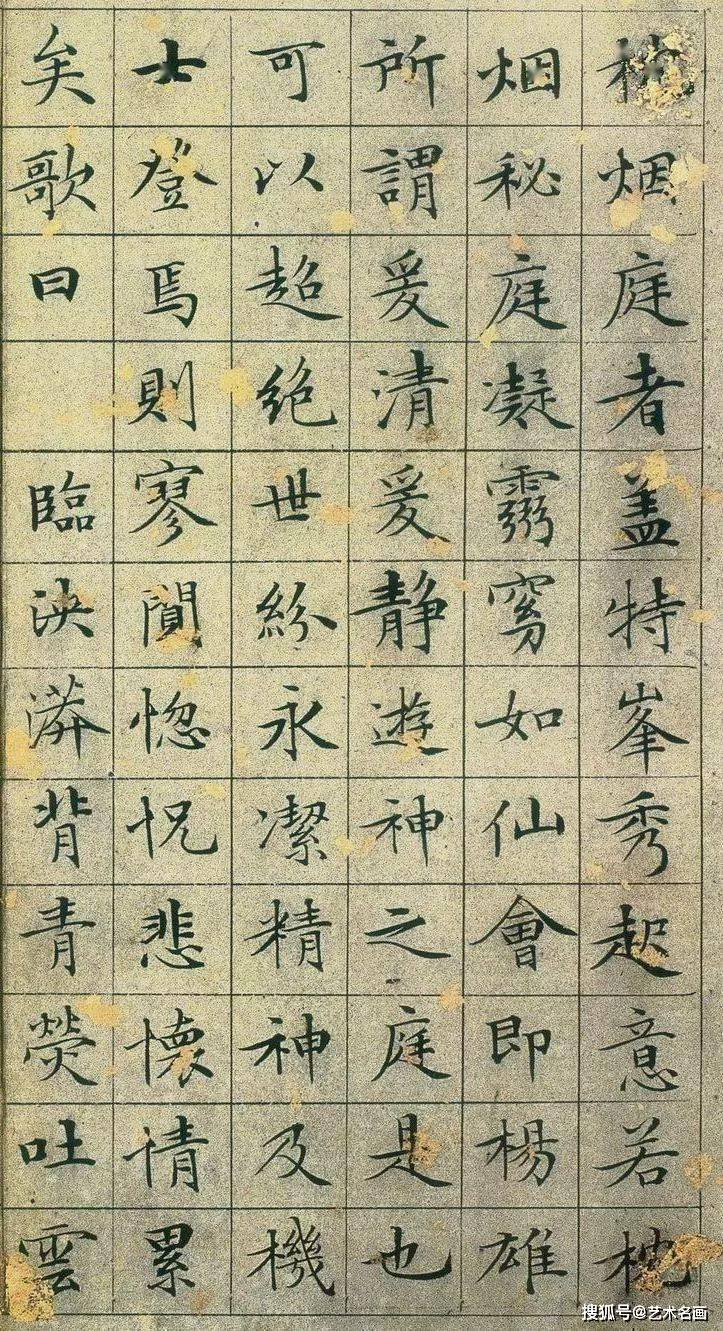 枕烟庭者盖特峯秀起意若枕
烟秘庭凝霛窅如仙會即楊雄
所謂爰清爰静遊神之庭是也
可以超絶世紛永潔精神及機
士登焉則寥闃惚怳悲懷情累
矣歌曰 臨泱漭背青熒吐雲
搜狐号@艺术名画